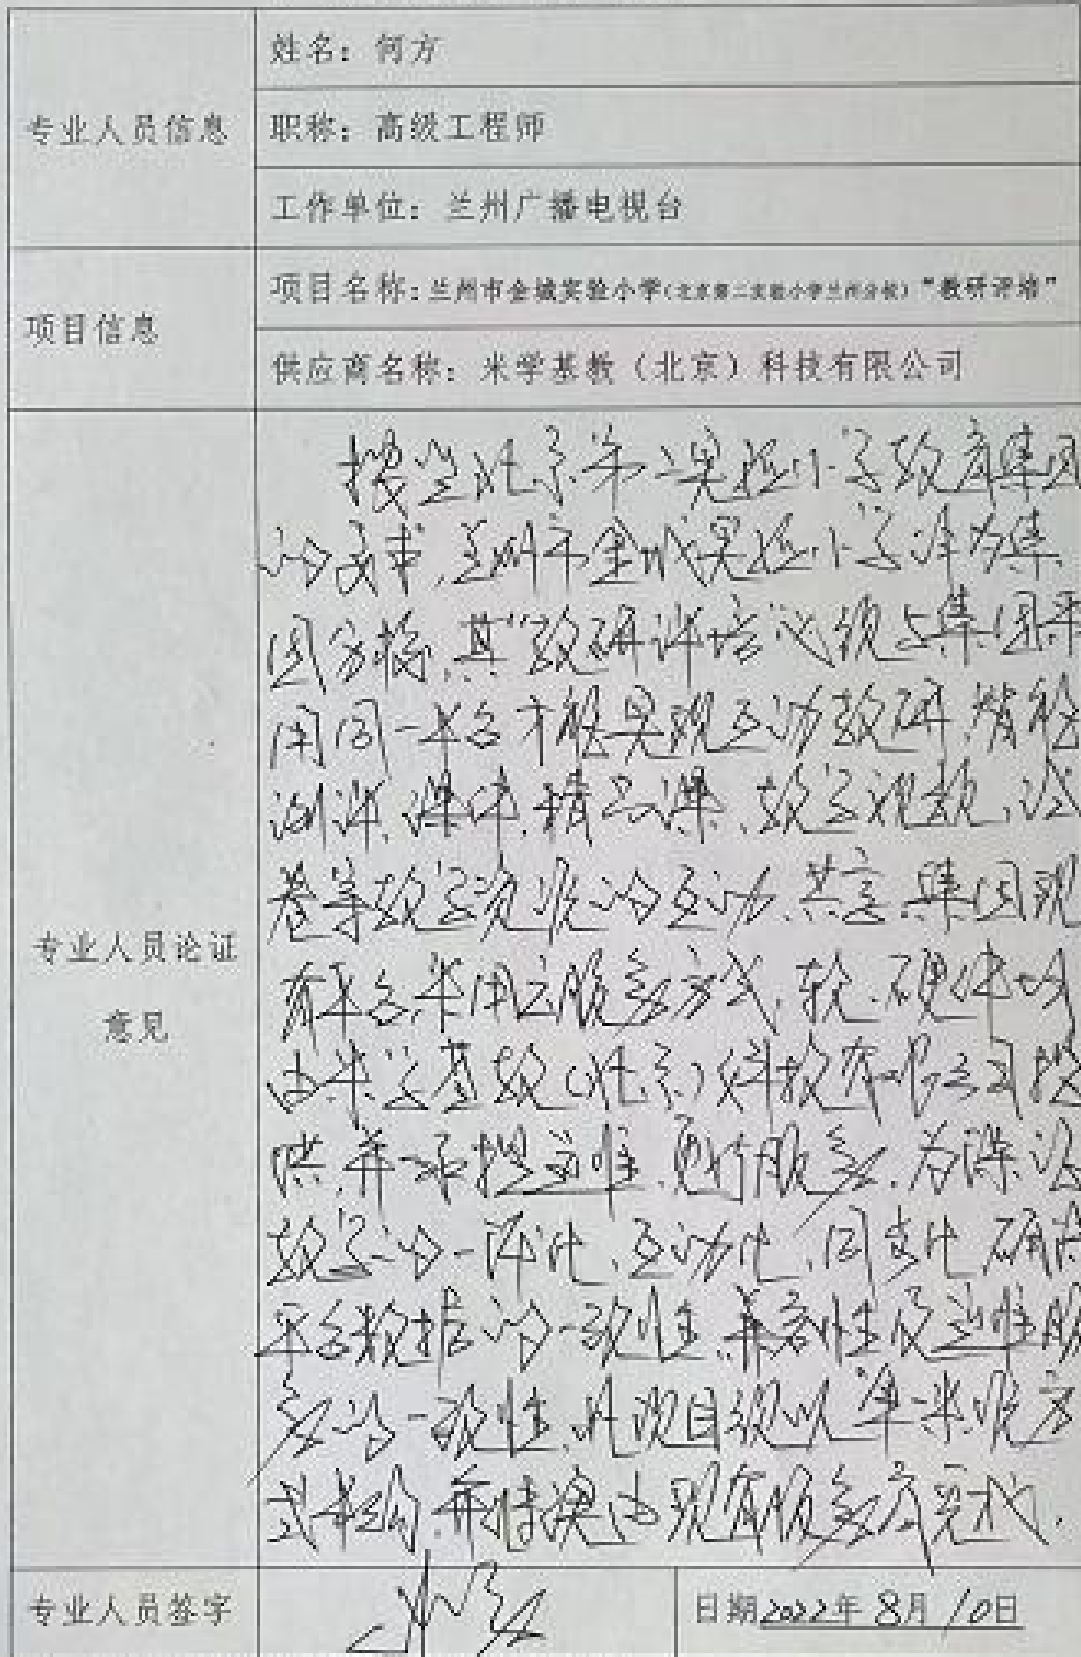 专业人员信息
姓名：何方
职称：高级工程师
工作单位：兰州广播电视台
项目信息
项目名称：兰州市金城实验小学（北京第二实验小学兰州分校）“教研评培”
供应商名称：米学基教（北京）科技有限公司
专业人员论证
意见
按照北京第二实验小学教育集团
的要求，兰州市金城实验小学作为集
团分校，其“教研评培”必须与集团采
用同一平台才能实现互动教研、智能
测评、课件、精品课、教学视频、试
卷等教学资源的互动、共享，集团现
有平台采用云服务方式，软、硬件均
由米学基教（北京）科技有限公司提
供，并承担运维、更新服务，为保证
教学的一体化、互动化、同步化，确保
平台数据的一致性、兼容性及运维服
务的一致性，此项目须以单一来源方
式采购，并情换由现有服务商完成。
专业人员签字
日期2022年8月10日